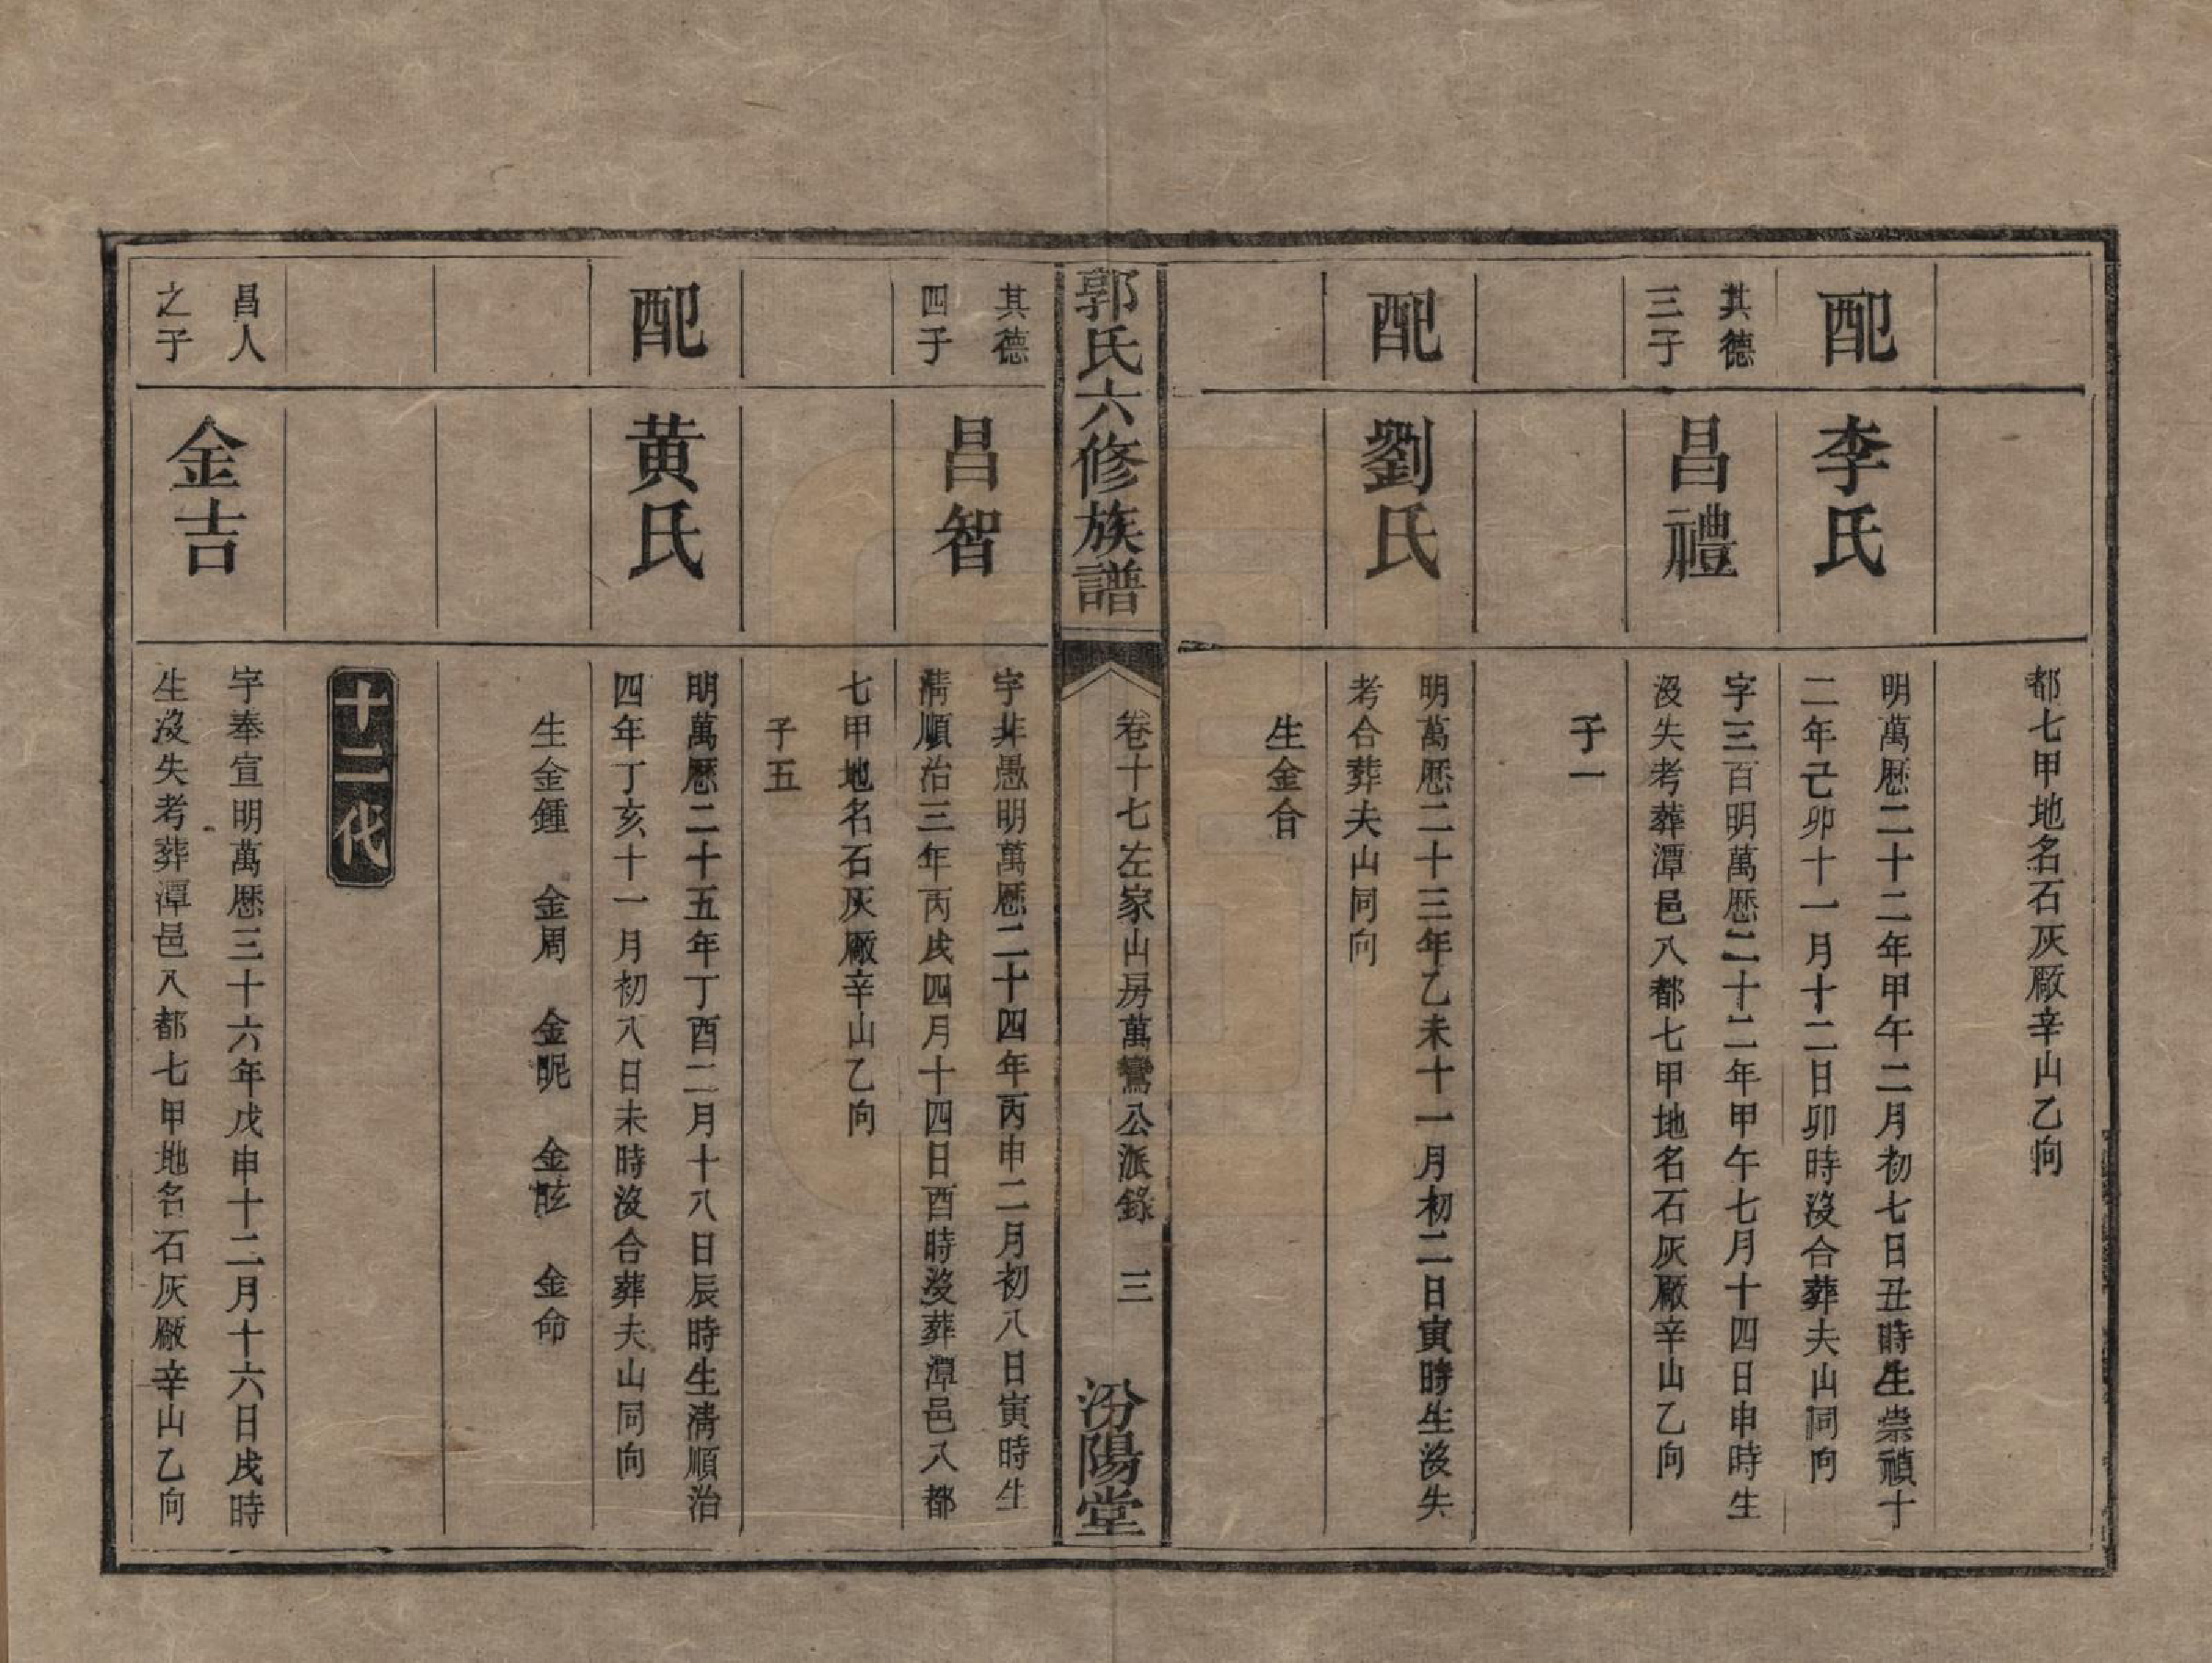 都七甲地名石灰廠辛山乙向
配
李氏
明萬歷二十二年甲午二月初七日丑時生崇禎十
二年己卯十一月十二日卯時沒合葬夫山同向
其德
三子
昌禮
字三百明萬歷二十二年甲午七月十四日申時生
沒失考葬潭邑八都七甲地名石灰廠辛山乙向
子一
配
劉氏
明萬歷二十三年乙未十一月初二日寅時生沒失
考合葬夫山同向
生金合
郭氏六修族譜
卷十七左家山房萬鸞公派錄
三
汾陽堂
其德
四子
昌智
字非愚明萬歷二十四年丙申二月初八日寅時生
清順治三年丙戌四月十四日酉時沒葬潭邑八都
七甲地名石灰廠辛山乙向
子五
配
黄氏
明萬歷二十五年丁酉二月十八日辰時生清順治
四年丁亥十一月初八日未時沒合葬夫山同向
生金鍾 金周 金昵 金眩 金命
十二代
昌人
之子
金吉
字奉宣明萬歷三十六年戊申十二月十六日戌時
生沒失考葬潭邑八都七甲地名石灰廠辛山乙向